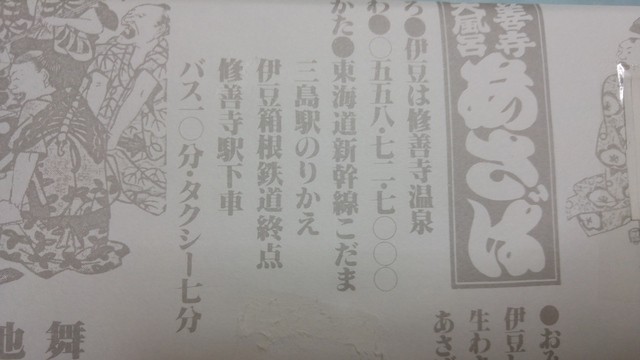 善寺
大風呂
あさば
ろ●伊豆は修善寺温泉
わ●〇五五八・七二・七〇〇〇
かた●東海道新幹線こだま
三島駅のりかえ
伊豆箱根鉄道終点
修善寺駅下車
バス一〇分・タクシー七分
●お
伊豆
生わ
あさ
舞
地